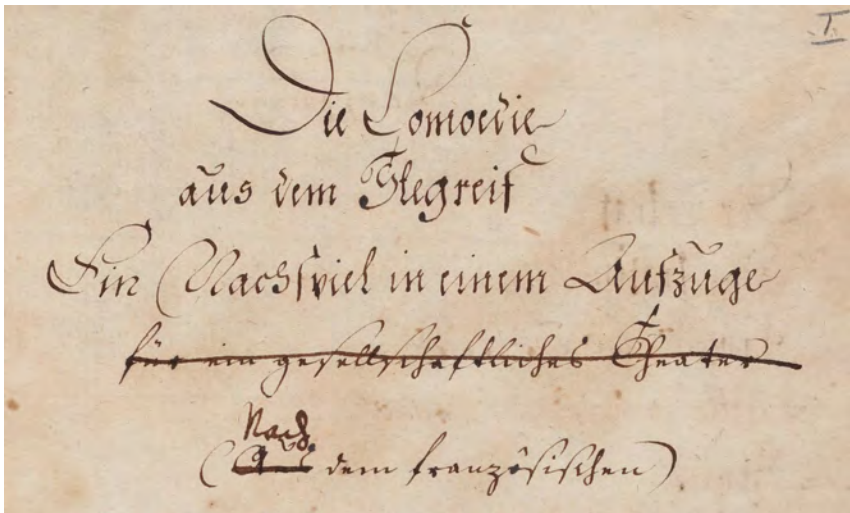 I.
Die Comoedie
aus dem Stegreif
Ein Nachspiel in einem Aufzuge
für ein gesellschaftliches Theater
Nach
(Aus dem französischen)